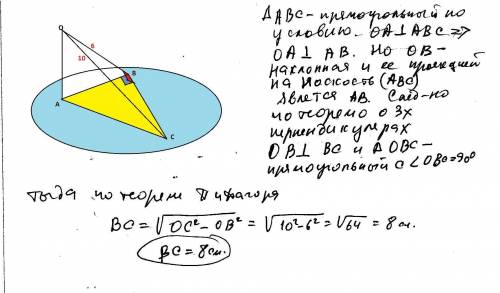 O
6
10
B
A
C
ΔABC - прямоугольный по
условию. OA⊥ABC =>
OA⊥AB. Но OB-
наклонная и ее проекцией
на плоскость (ABC)
явлется AB. След-но
по теореме о 3х
перпендикулярах
OB⊥BC и ΔOBC-
прямоугольный с ∠OBC=90°
тогда по теореме Пифагора
BC = √OC²-OB² = √10²-6² = √64 = 8 см.
BC = 8см.